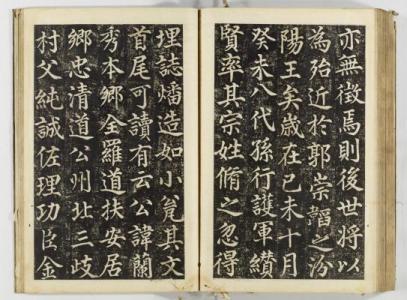 亦無徵焉則後世將以
為殆近於郭崇韜之汾
陽王矣歲在己未十月
癸未八代孫行護軍纘
賢率其宗姓脩之忽得
埋誌燔造如小瓮其文
首尾可讀有云公諱蘭
秀本鄉全羅道扶安居
鄉忠清道公州北三歧
村父純誠佐理功臣金